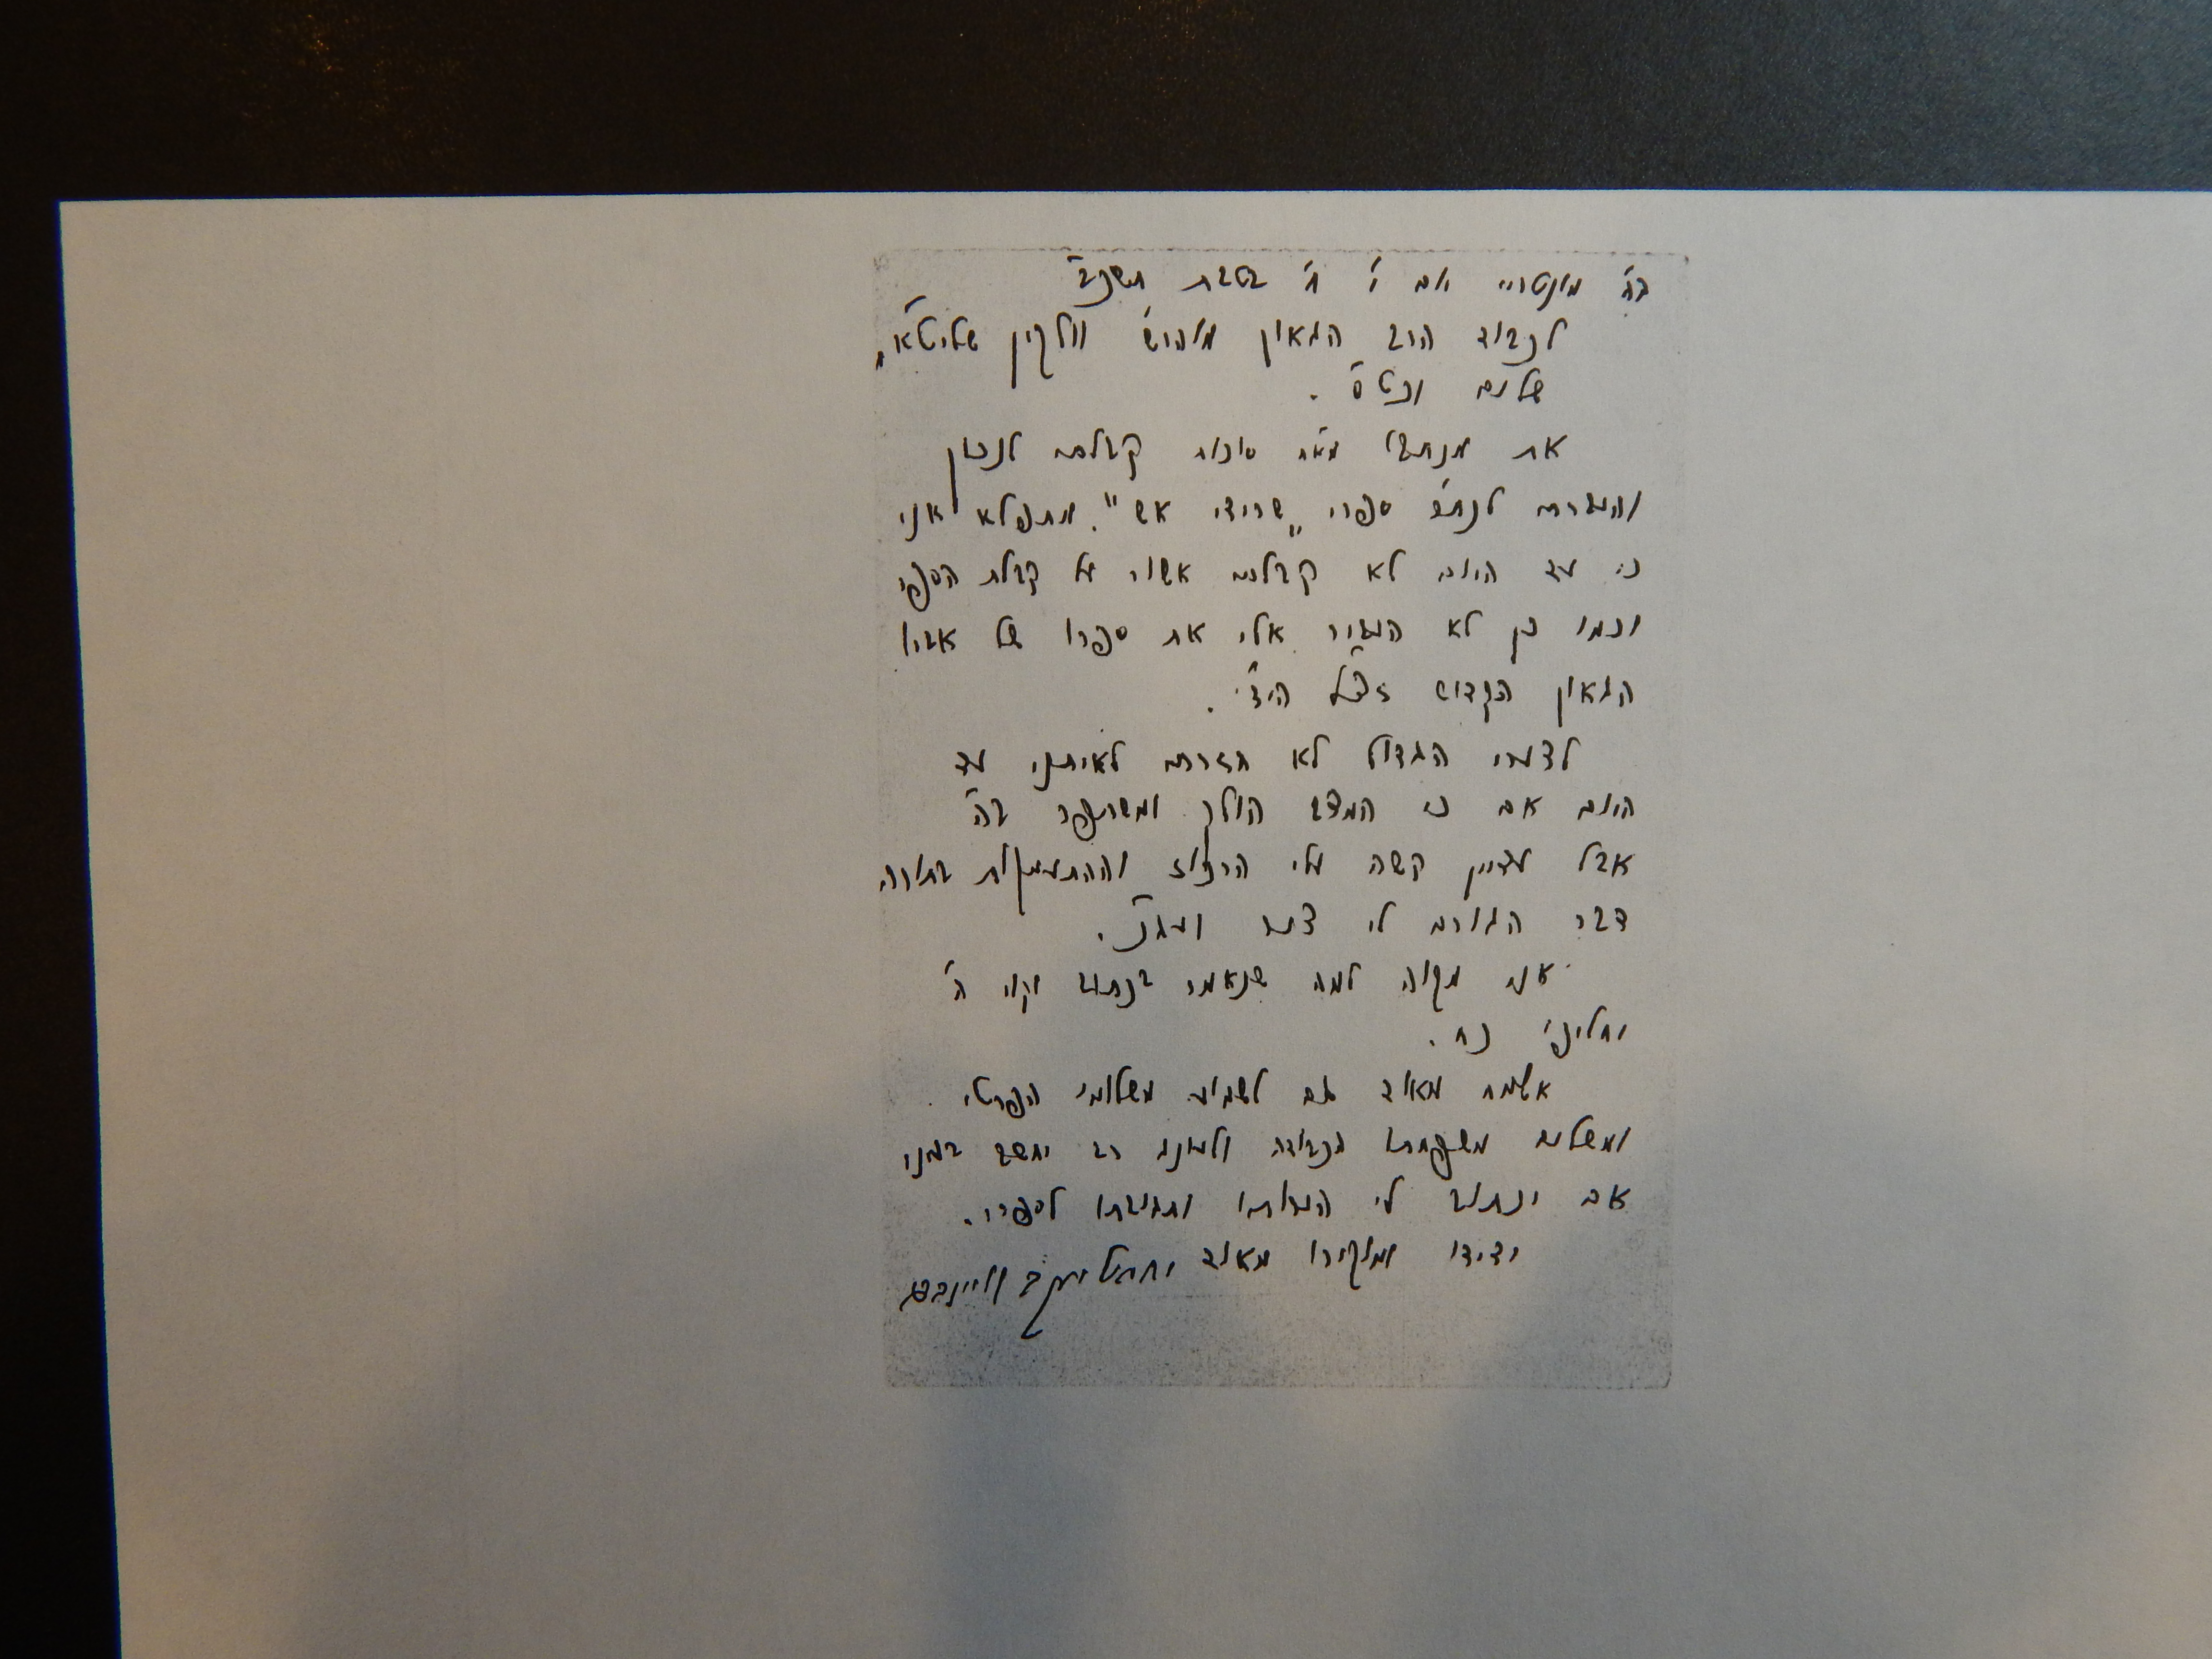 ב"ה מונטריי יום ו' ח' בטבת תשכ"ב
לכבוד הרב הגאון מוהר"ש וולקין שליט"א,
שלום וכט"ס.
את מכתבו מא"ח סוכות קבלתי לנכון
והעברתי לכת"ר ספרי "שרידי אש". מתפלא אני
כי עד היום לא קבלתי אשור על קבלת הספר
וכמו כן לא העביר אלי את ספרו של אביו
הגאון הקדוש זצ"ל הי"ד.
לצערי הגדול לא חזרתי לאיתני עד
היום אם כי המצב הולך ומשתפר ב"ה
אבל עדיין קשה עלי הריכוז וההתעמקות בתורה
דבר הגורם לי צער ועגמ"נ.
אני מקוה למה שנאמר בכתוב וקוי ה'
יחליפו כח.
אשמח מאוד גם לשמוע משלומו הפרטי
ומשלום משפחתו הכבודה ולעונג רב יחשב בעיני
אם יכתוב לי הערותיו ותגובתו לספרי.
ידידו ומוקירו מאוד יחיאל יעקב וויינברג